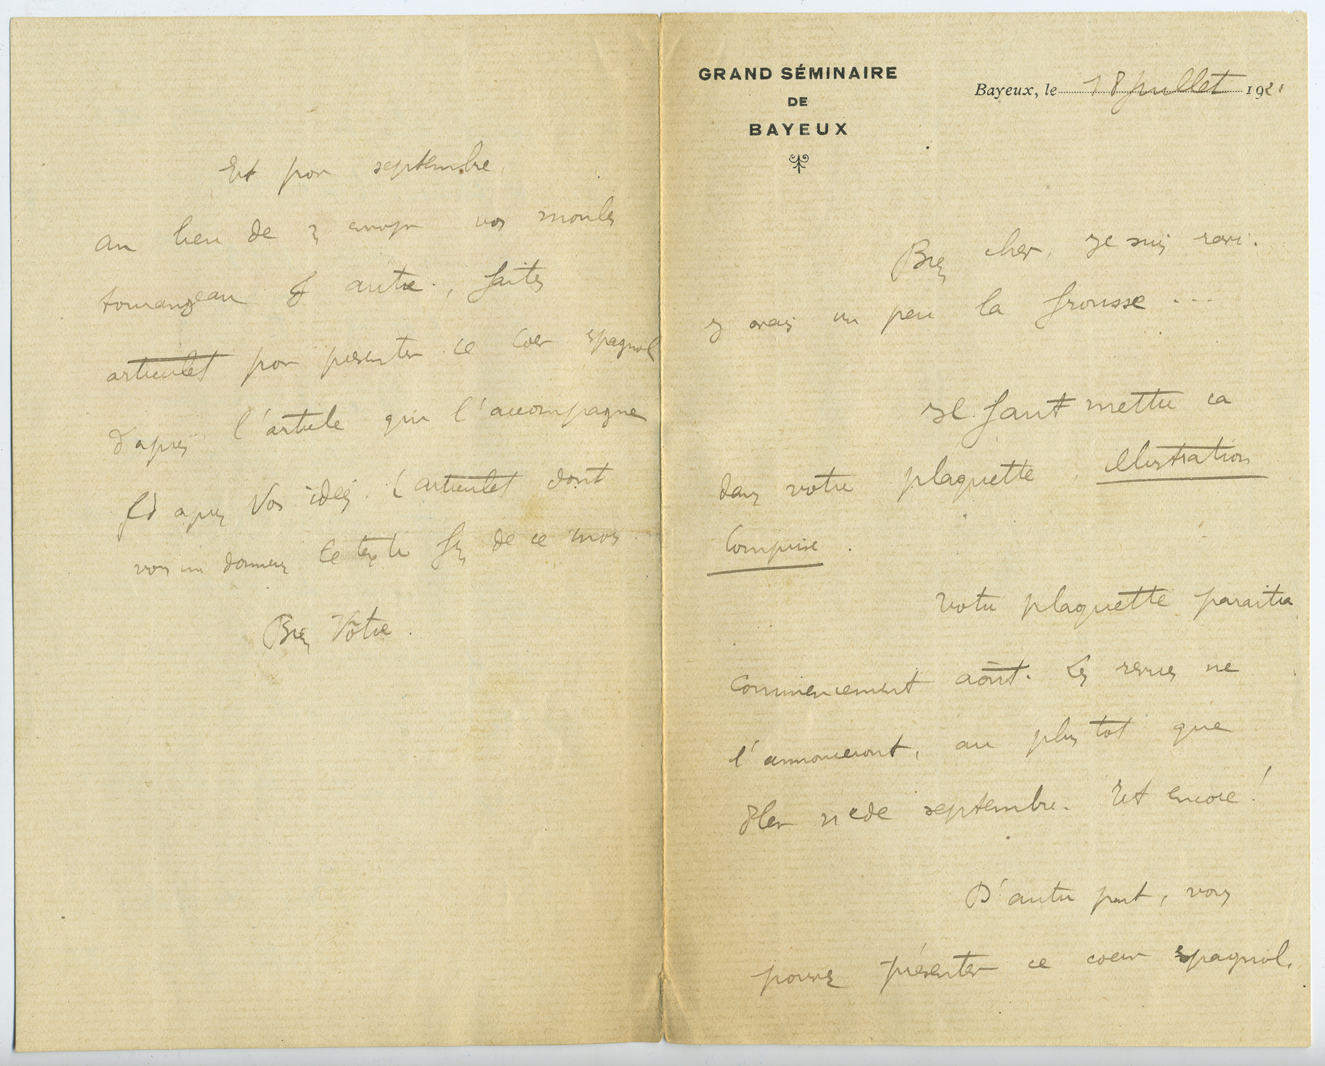 GRAND SÉMINAIRE
DE
BAYEUX
Bayeux, le 18 juillet 1921
Bien cher, je suis ravi.
J'avais un peu la frousse ...
Il faut mettre ca
dans votre plaquette, illustration
comprise.
Votre plaquette paraitra
commencement août. Les revues ne
l'annonceront, au plus tôt que
de septembre. Et encore!
D'autre part, vous
pouvez présenter ce coeur espagnol.
Et pour septembre,
au lieu de vos moules
tourangeau & autre, faites
articulet pour présenter ce coeur espagnol
d'après l'article qui l'accompagne
& d'après vos idées. (articulet dont
vous me donnerez le texte fin de ce mois
Bien Vôtre.